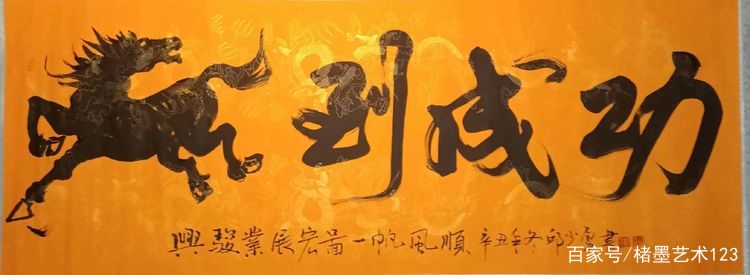 到成功
興駿業展宏啚一帆風順 辛丑年冬邱少書
百家号/楮墨艺术123